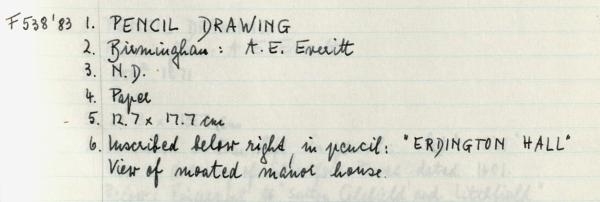 F538'83 1. PENCIL DRAWING
2. Birmingham: A. E. Everitt
3. N.D.
4. Paper
5. 12.7 x 17.7 cm
6. Inscribed below right, in pencil: "ERDINGTON HALL"
View of moated manor house.